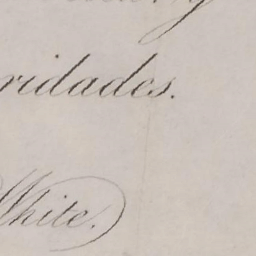 ridades.
White.